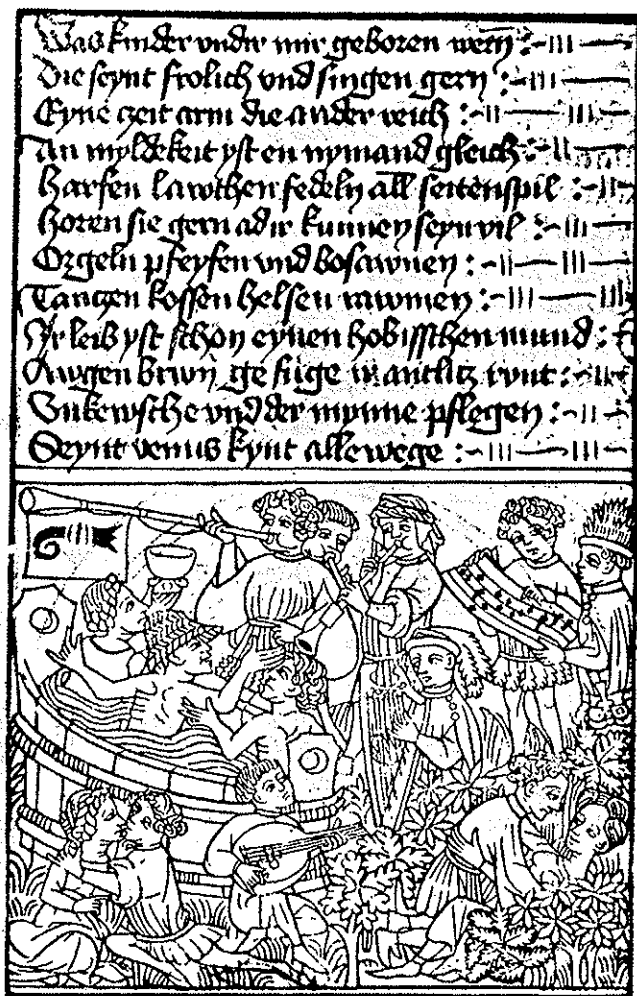 Was kinder vndir mir geboren wern :~III—
Die seynt frolich vnd singen gern :~III—
Eyne czeit arm die ander reich :~II—III—
An myldekeit yst en nymand gleich :~II
Harfen lawthen fedeln all seitenspil :~II
Horen sie gern adir kunnen seyn vil :~III
Orgeln pfeyfen vnd bosawnen :~II—III—
Tanczen kossen helsen rawmen :~III—III
Ir leib yst schon eynen hobisschen mund :~
Awgen brwn gefuge ir antlitz runt :~II
Vnkewsche vnd der mynne pflegen :~II—
Seynt venus kynt allewege :~III—III—